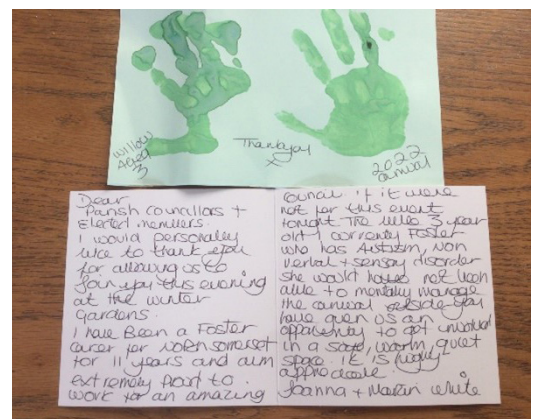 Willow
Aged
3
Thankyou
x
2022
carnival
Dear
Parish Councillors +
Elected members
I would personally
like to thank you
for allowing us to
Join you this evening
at the winter
Gardens.
I have Been a Foster
carer for North somerset
for 11 years and am
extremely proud to
work for an amazing
Council. if it were
not for this event
tonight The little 3 year
old I currently Foster
who has Autism, Non
verbal + sensory disorder
she would not been
able to mentally manage
the carnival you
have given us an
opportunity to get involved
in a safe, warm, quiet
space. it is highly
appreciated.
Joanna + Martin White